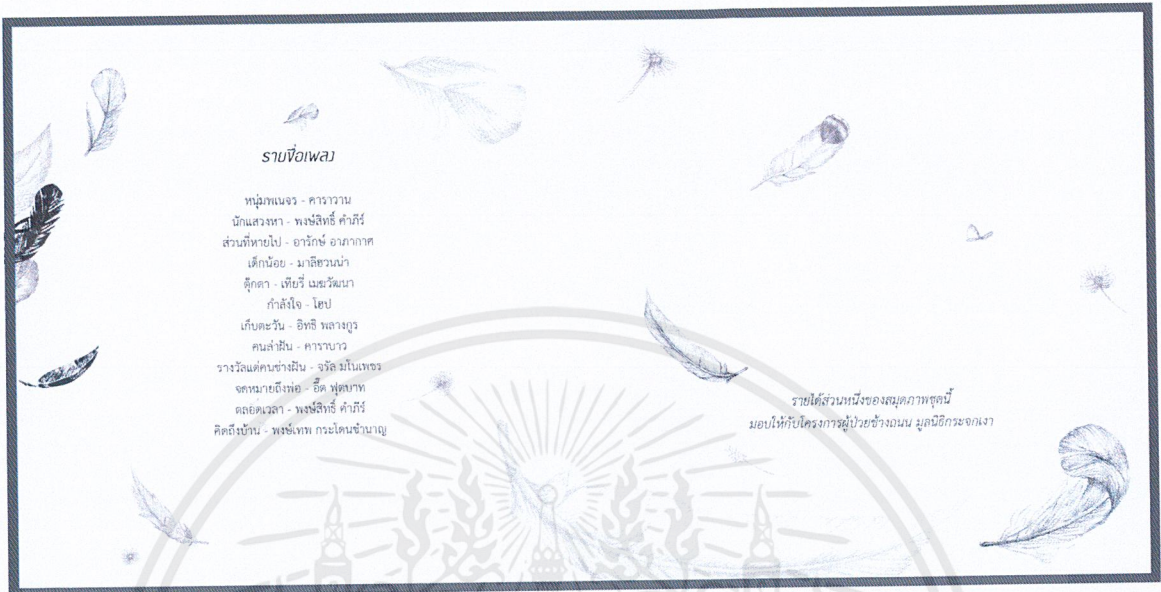 รายชื่อเพลง
หนุ่มพเนจร - คาราวาน
นักแสวงหา - พงษ์สิทธิ์ คำภีร์
ส่วนที่หายไป - อารักษ์ อาภากาศ
เด็กน้อย - มาลีฮวนน่า
ตุ๊กตา - เทียรี่ เมฆวัฒนา
กำลังใจ - โฮป
เก็บตะวัน - อิทธิ พลางกูร
คนล่าฝัน - คาราบาว
รางวัลแด่คนช่างฝัน - จรัล มโนเพชร
จดหมายถึงพ่อ - อี๊ด ฟุตบาท
ตลอดเวลา - พงษ์สิทธิ์ คำภีร์
คิดถึงบ้าน - พงษ์เทพ กระโดนชำนาญ
รายได้ส่วนหนึ่งของสมุดภาพชุดนี้
มอบให้กับโครงการผู้ป่วยข้างถนน มูลนิธิกระจกเงา